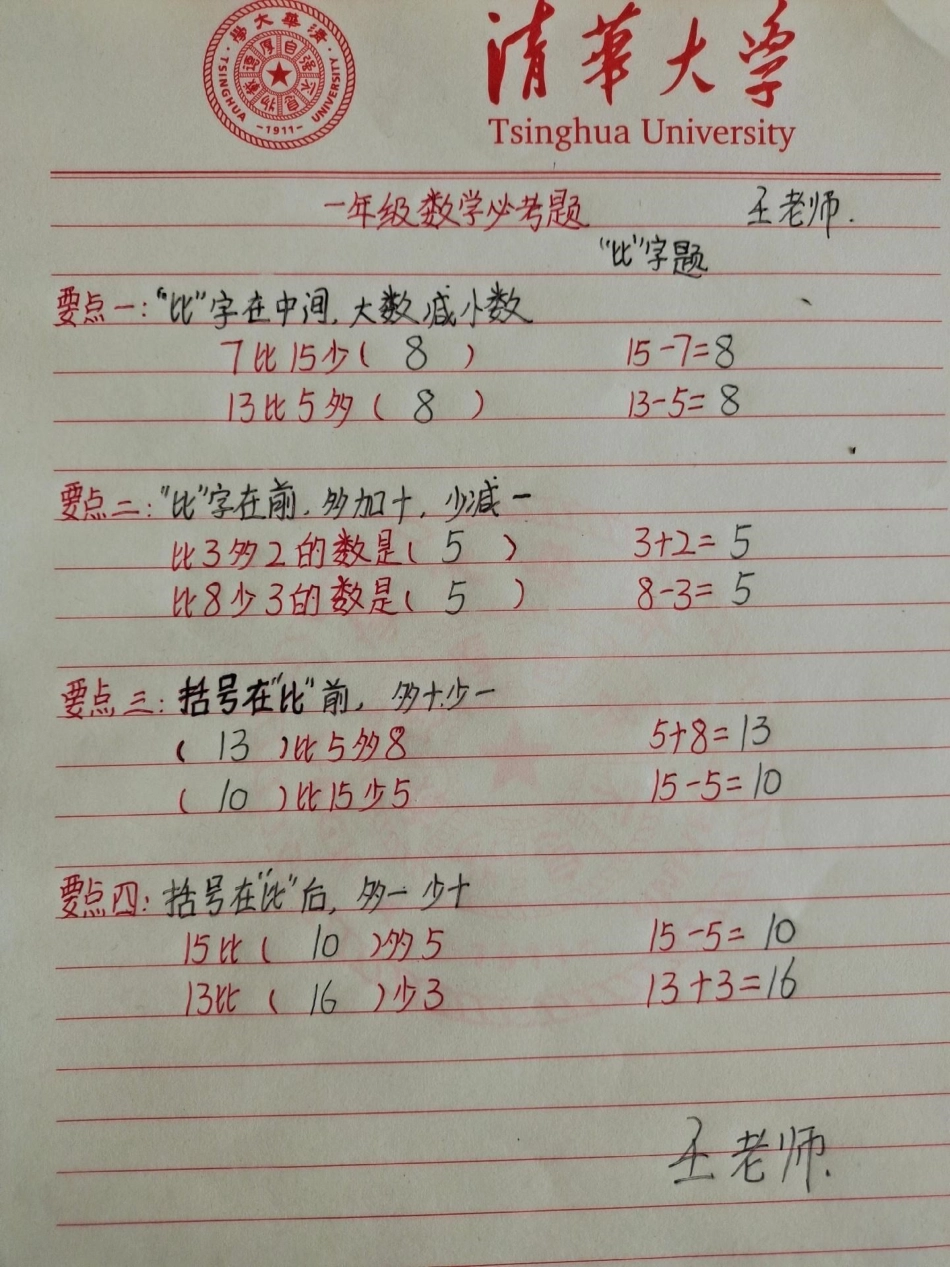 清華大学
Tsinghua University
TSINGHUA UNIVERSITY
-1911-
一年级数学必考题 王老师.
"比"字题
要点一:"比"字在中间,大数减小数
7比15少( 8 ) 15-7=8
13比5多( 8 ) 13-5=8
要点二:"比"字在前,多加十,少减一
比3多2的数是( 5 ) 3+2=5
比8少3的数是( 5 ) 8-3=5
要点三:括号在"比"前,多十少一
( 13 )比5多8 5+8=13
( 10 )比15少5 15-5=10
要点四:括号在"比"后,多一少十
15比( 10 )多5 15-5=10
13比( 16 )少3 13+3=16
王老师.